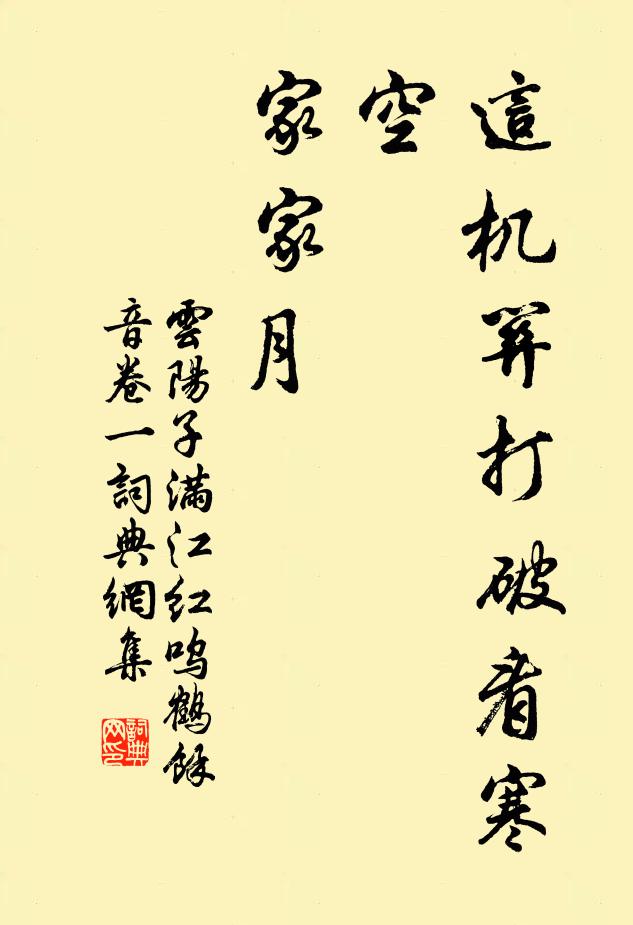 這机關打破看寒
空
家家月
雲陽子满江红鸣鶴餘
音卷一詞典網集
詞典网印